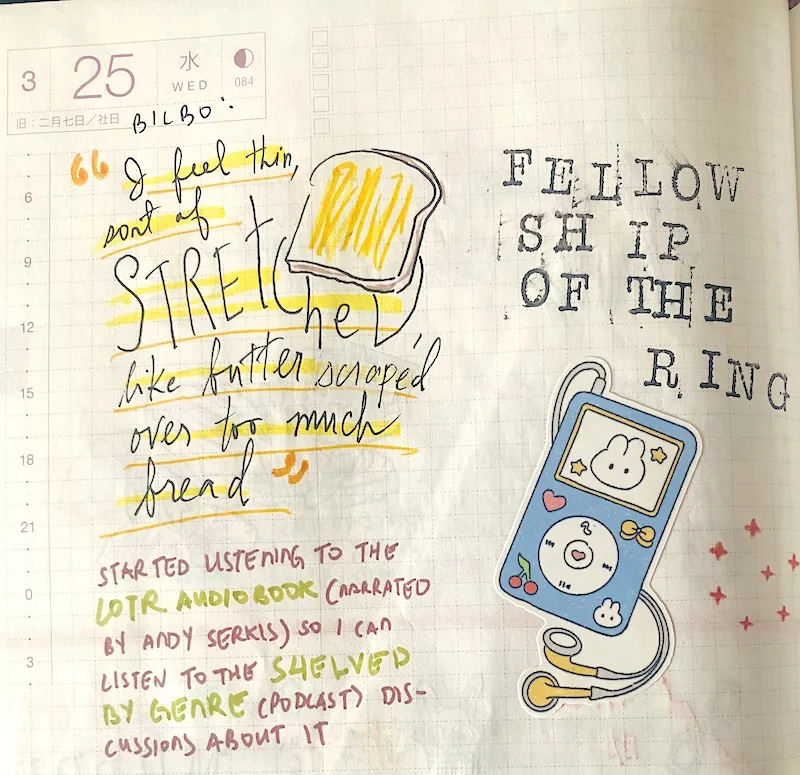 3 25 水 WED 084
旧：二月七日／社日
BILBO:
“I feel thin,
sort of
STRETCHED,
like butter scraped
over too much
bread”
STARTED LISTENING TO THE
LOTR AUDIOBOOK (NARRATED
BY ANDY SERKIS) SO I CAN
LISTEN TO THE SHELVED
BY GENRE (PODCAST) DIS-
CUSSIONS ABOUT IT
6
9
12
15
18
21
0
3
FELLOW
SHIP
OF THE
RING